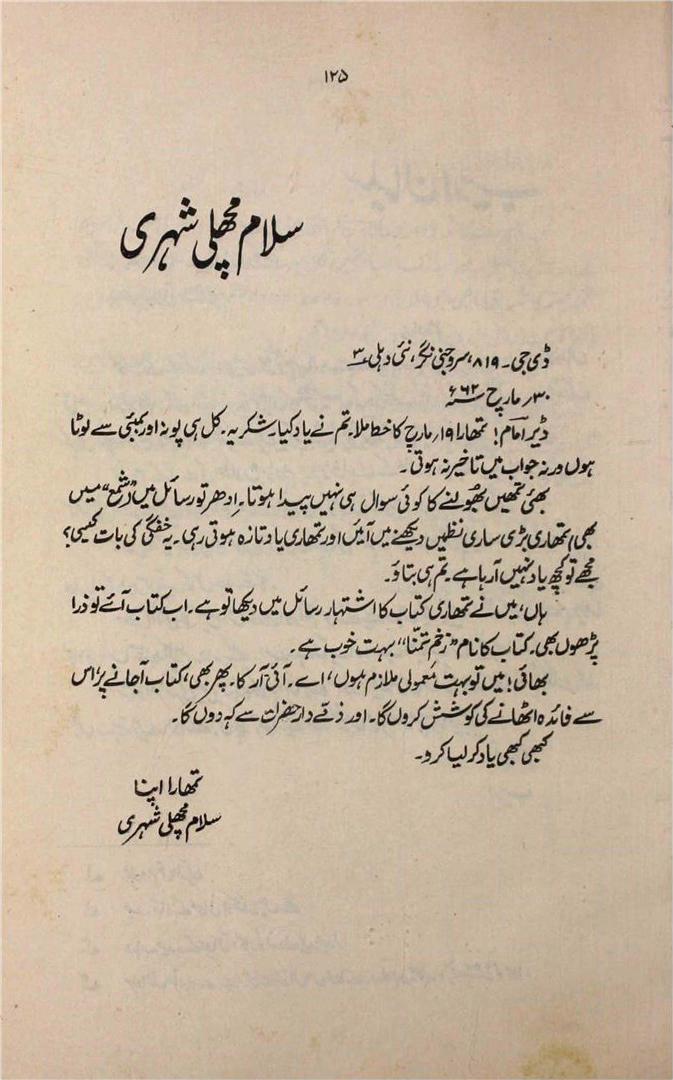 ۱۲۵
سلام مچھلی شہری
ڈی جی۔ ۸۱۹، سروجنی نگر، نئی دہلی ۳
۳۰؍ مارچ ۶۲ء
ڈیر امام! تمھارا ۱۹؍ مارچ کا خط ملا۔ تم نے یاد کیا۔ شکریہ۔ کل ہی پونہ اور بمبئی سے لوٹا
ہوں ورنہ جواب میں تاخیر نہ ہوتی۔
بھئی تمھیں بھولنے کا کوئی سوال ہی نہیں پیدا ہوتا۔ ادھر تو رسائل میں (”شمع“ میں
بھی) تمھاری بڑی ساری نظمیں دیکھنے میں آئیں اور تمھاری یاد تازہ ہوتی رہی۔ یہ خفگی کی بات کیسی؟
مجھے تو کچھ یاد نہیں آ رہا ہے۔ تم ہی بتاؤ۔
ہاں، میں نے تمھاری کتاب کا اشتہار رسائل میں دیکھا تو ہے۔ اب کتاب آئے تو ذرا
پڑھوں بھی۔ کتاب کا نام ”زخمِ تمنّا“ بہت خوب ہے۔
بھائی! میں تو بہت معمولی ملازم ہوں، اے۔ آئی آر کا۔ پھر بھی، کتاب آجانے پر، اس
سے فائدہ اٹھانے کی کوشش کروں گا۔ اور ذمّے دار حضرات سے کہہ دوں گا۔
کبھی کبھی یاد کر لیا کرو۔
تمھارا اپنا
سلام مچھلی شہری